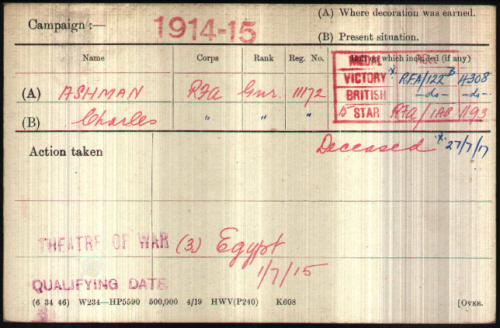 (A) Where decoration was earned.
Campaign :— 1914-15
(B) Present situation.
Name Corps Rank Reg. No. which included (if any)
MEDAL
(A) ASHMAN RFA Gnr. 11172 VICTORY RFA/122B 14308
BRITISH -do- -do-
(B) Charles " " " 15 STAR RFA/1AB 1193
Action taken Deceased 27/7/17
THEATRE OF WAR (3) Egypt
1/7/15
QUALIFYING DATE
(6 34 46) W234—HP5590 500,000 4/19 HWV(P240) K608 [OVER.